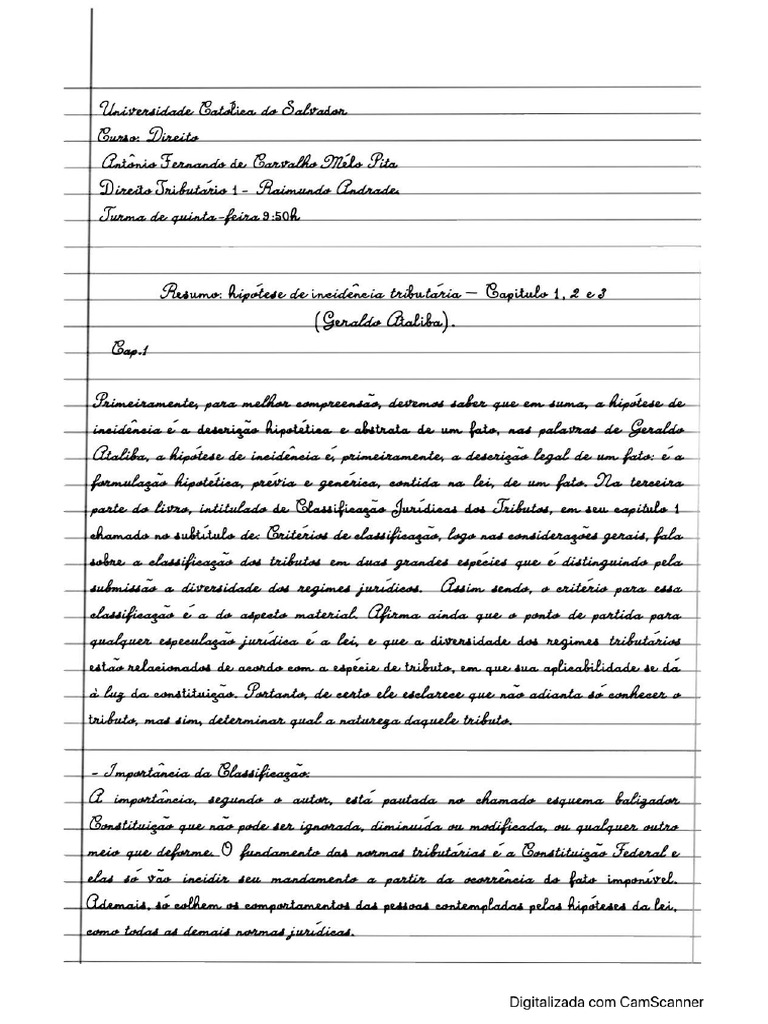 Universidade Católica do Salvador
Curso: Direito
Antônio Fernando de Carvalho Mélo Pita
Direito Tributário 1 - Raimundo Andrade.
Turma de quinta-feira 9:50h
Resumo: hipótese de incidência tributária – Capitulo 1, 2 e 3
(Geraldo Ataliba).
Cap.1
Primeiramente, para melhor compreensão, devemos saber que em suma, a hipótese de
incidência é a descrição hipotética e abstrata de um fato, nas palavras de Geraldo
Ataliba, a hipótese de incidência é, primeiramente, a descrição legal de um fato: é a
formulação hipotética, prévia e genérica, contida na lei, de um fato. Na terceira
parte do livro, intitulado de Classificação Jurídicas dos Tributos, em seu capitulo 1
chamado no subtítulo de: Critérios de classificação, logo nas considerações gerais, fala
sobre a classificação dos tributos em duas grandes espécies que é distinguindo pela
submissão a diversidade dos regimes jurídicos. Assim sendo, o critério para essa
classificação é a do aspecto material. Afirma ainda que o ponto de partida para
qualquer especulação jurídica é a lei, e que a diversidade dos regimes tributários
estão relacionados de acordo com a espécie de tributo, em que sua aplicabilidade se dá
à luz da constituição. Portanto, de certo ele esclarece que não adianta só conhecer o
tributo, mas sim, determinar qual a natureza daquele tributo.
- Importância da Classificação:
A importância, segundo o autor, está pautada no chamado esquema balizador
Constituição que não pode ser ignorada, diminuída ou modificada, ou qualquer outro
meio que deforme. O fundamento das normas tributárias é a Constituição Federal e
elas só vão incidir seu mandamento a partir da ocorrência do fato imponível.
Ademais, só colhem os comportamentos das pessoas contempladas pelas hipóteses da lei,
como todas as demais normas jurídicas.
Digitalizada com CamScanner